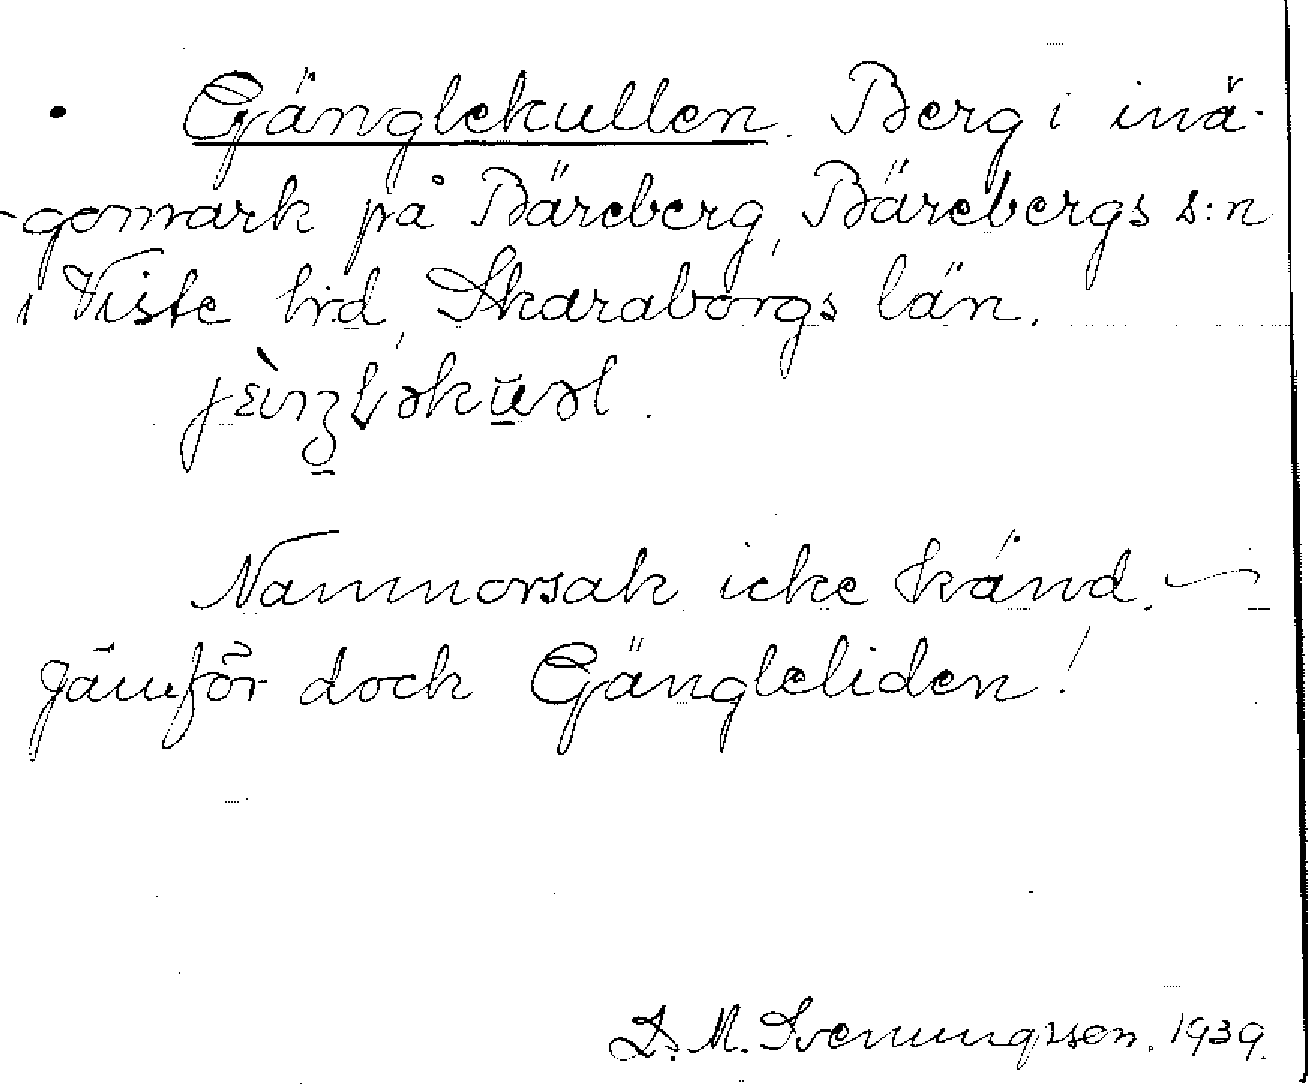 Gänglekullen. Berg i inä-
-gomark på Bäreberg, Bärebergs s:n
i Viste hrd, Skaraborgs län.
Namnorsak icke känd. —
Jämför doch Gängleliden!
D. M. Svenungsson. 1939.